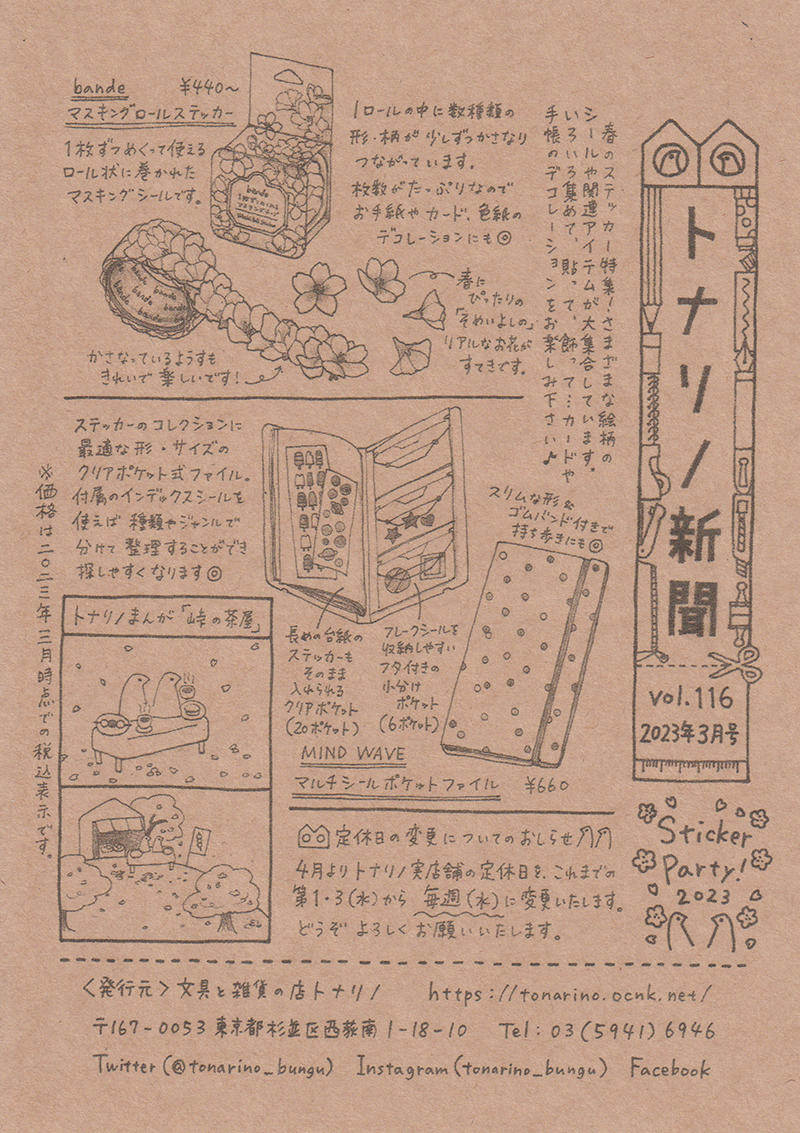 トナリノ新聞
vol.116
2023年3月号
春のステッカー特集！さまざまな絵柄の
シールや関連アイテムが大集合しています。
いろいろ集めて、貼って、飾って…カードや
手帳のデコレーションをお楽しみ下さい♪
bande ¥440〜
マスキングロールステッカー
1枚ずつめくって使える
ロール状に巻かれた
マスキングシールです。
bande
1ロールの中に数種類の
形・柄が少しずつかさなり
つながっています。
枚数がたっぷりなので
お手紙やカード、色紙の
デコレーションにも◎
bande
bande
bande
春に
ぴったりの
「そめいよしの」
リアルなお花が
すてきです。
かさなっているようすも
きれいで楽しいです！
ステッカーのコレクションに
最適な形・サイズの
クリアポケット式ファイル。
付属のインデックスシールを
使えば種類やジャンルで
分けて整理することができ
探しやすくなります◎
スリムな形&
ゴムバンド付きで
持ち歩きにも◎
長めの台紙の
ステッカーも
そのまま
入れられる
クリアポケット
(20ポケット)
フレークシールを
収納しやすい
フタ付きの
小分け
ポケット
(6ポケット)
MIND WAVE
マルチシールポケットファイル ¥660
※価格は二〇二三年三月時点での税込表示です。
トナリノまんが「峠の茶屋」
定休日の変更についてのおしらせ
4月よりトナリノ実店舗の定休日を、これまでの
第1・3(水)から毎週(水)に変更いたします。
どうぞよろしくお願いいたします。
Sticker
Party!
2023
<発行元>文具と雑貨の店トナリノ https://tonarino.ocnk.net/
〒167-0053 東京都杉並区西荻南1-18-10 Tel:03(5941)6946
Twitter(@tonarino_bungu) Instagram(tonarino_bungu) Facebook